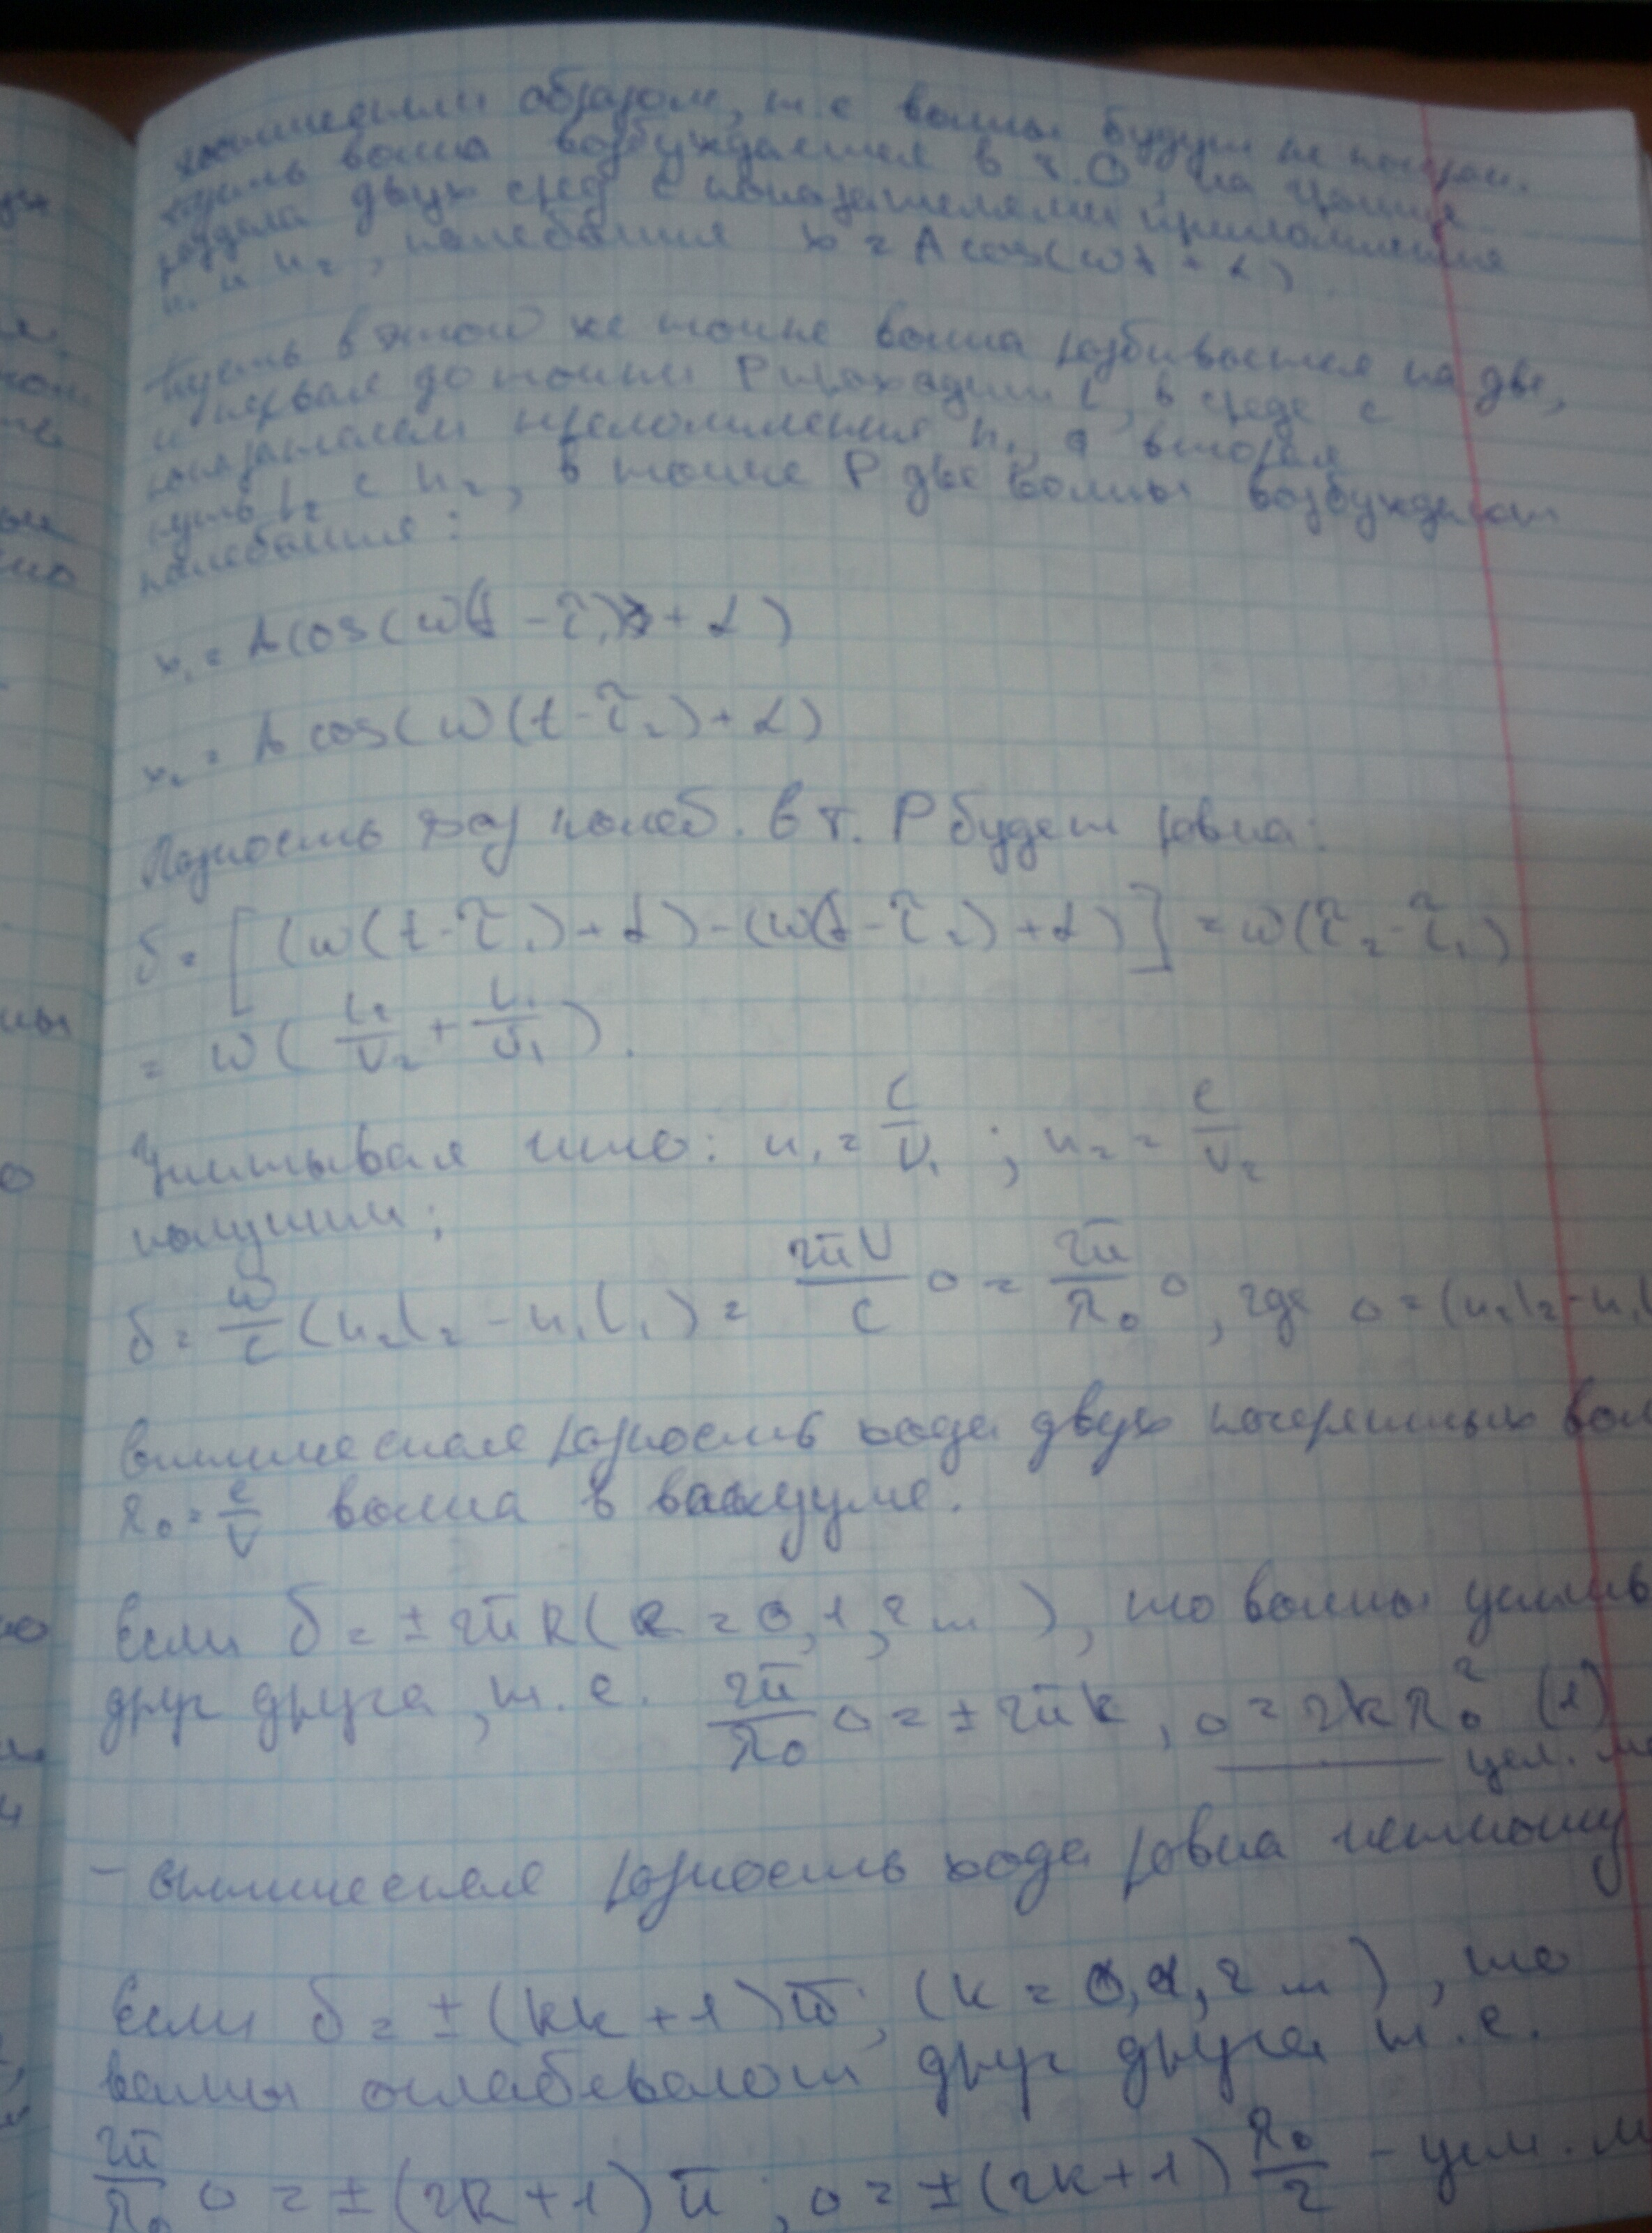 образом, т.е волны будут не когерен.
Пусть волна возбуждается в т. О, на границе
раздела двух сред с показателями преломления
n₁ и n₂, колебания x = A cos(ωt + α)
Пусть в этой же точке волна разбивается на две,
и первая до точки P проходит l, в среде с
показателем преломления n₁, а вторая
путь l₂ с n₂, в точке P две волны возбуждают
колебания:
x₁ = A cos(ω(t - τ₁) + α)
x₂ = A cos(ω(t - τ₂) + α)
Разность фаз колеб. в т. P будет равна:
δ = [(ω(t - τ₁) + α) - (ω(t - τ₂) + α)] = ω(τ₂ - τ₁)
= ω(l₂/v₂ + l₁/v₁).
Учитывая что: n₁ = c/v₁ ; n₂ = c/v₂
получим;
δ = ω/c (n₂l₂ - n₁l₁) = 2πν/c Δ = 2π/λ₀ Δ, где Δ = (n₂l₂ - n₁l
оптическая разность хода двух когерентных вол
λ₀ = c/ν волна в вакууме.
Если δ = ±2πk (k = 0, 1, 2 m), то волны усилив
друг друга, т.е. 2π/λ₀ Δ = ±2πk, Δ = 2kλ₀/2 (1)
усл. ма
- оптическая разность хода равна четному
Если δ = ±(kk + 1)π; (k = 0, 1, 2 m), то
волны ослабевают друг друга т.е.
2π/λ₀ Δ = ±(2k + 1)π; Δ = ±(2k + 1) λ₀/2 - усл. м